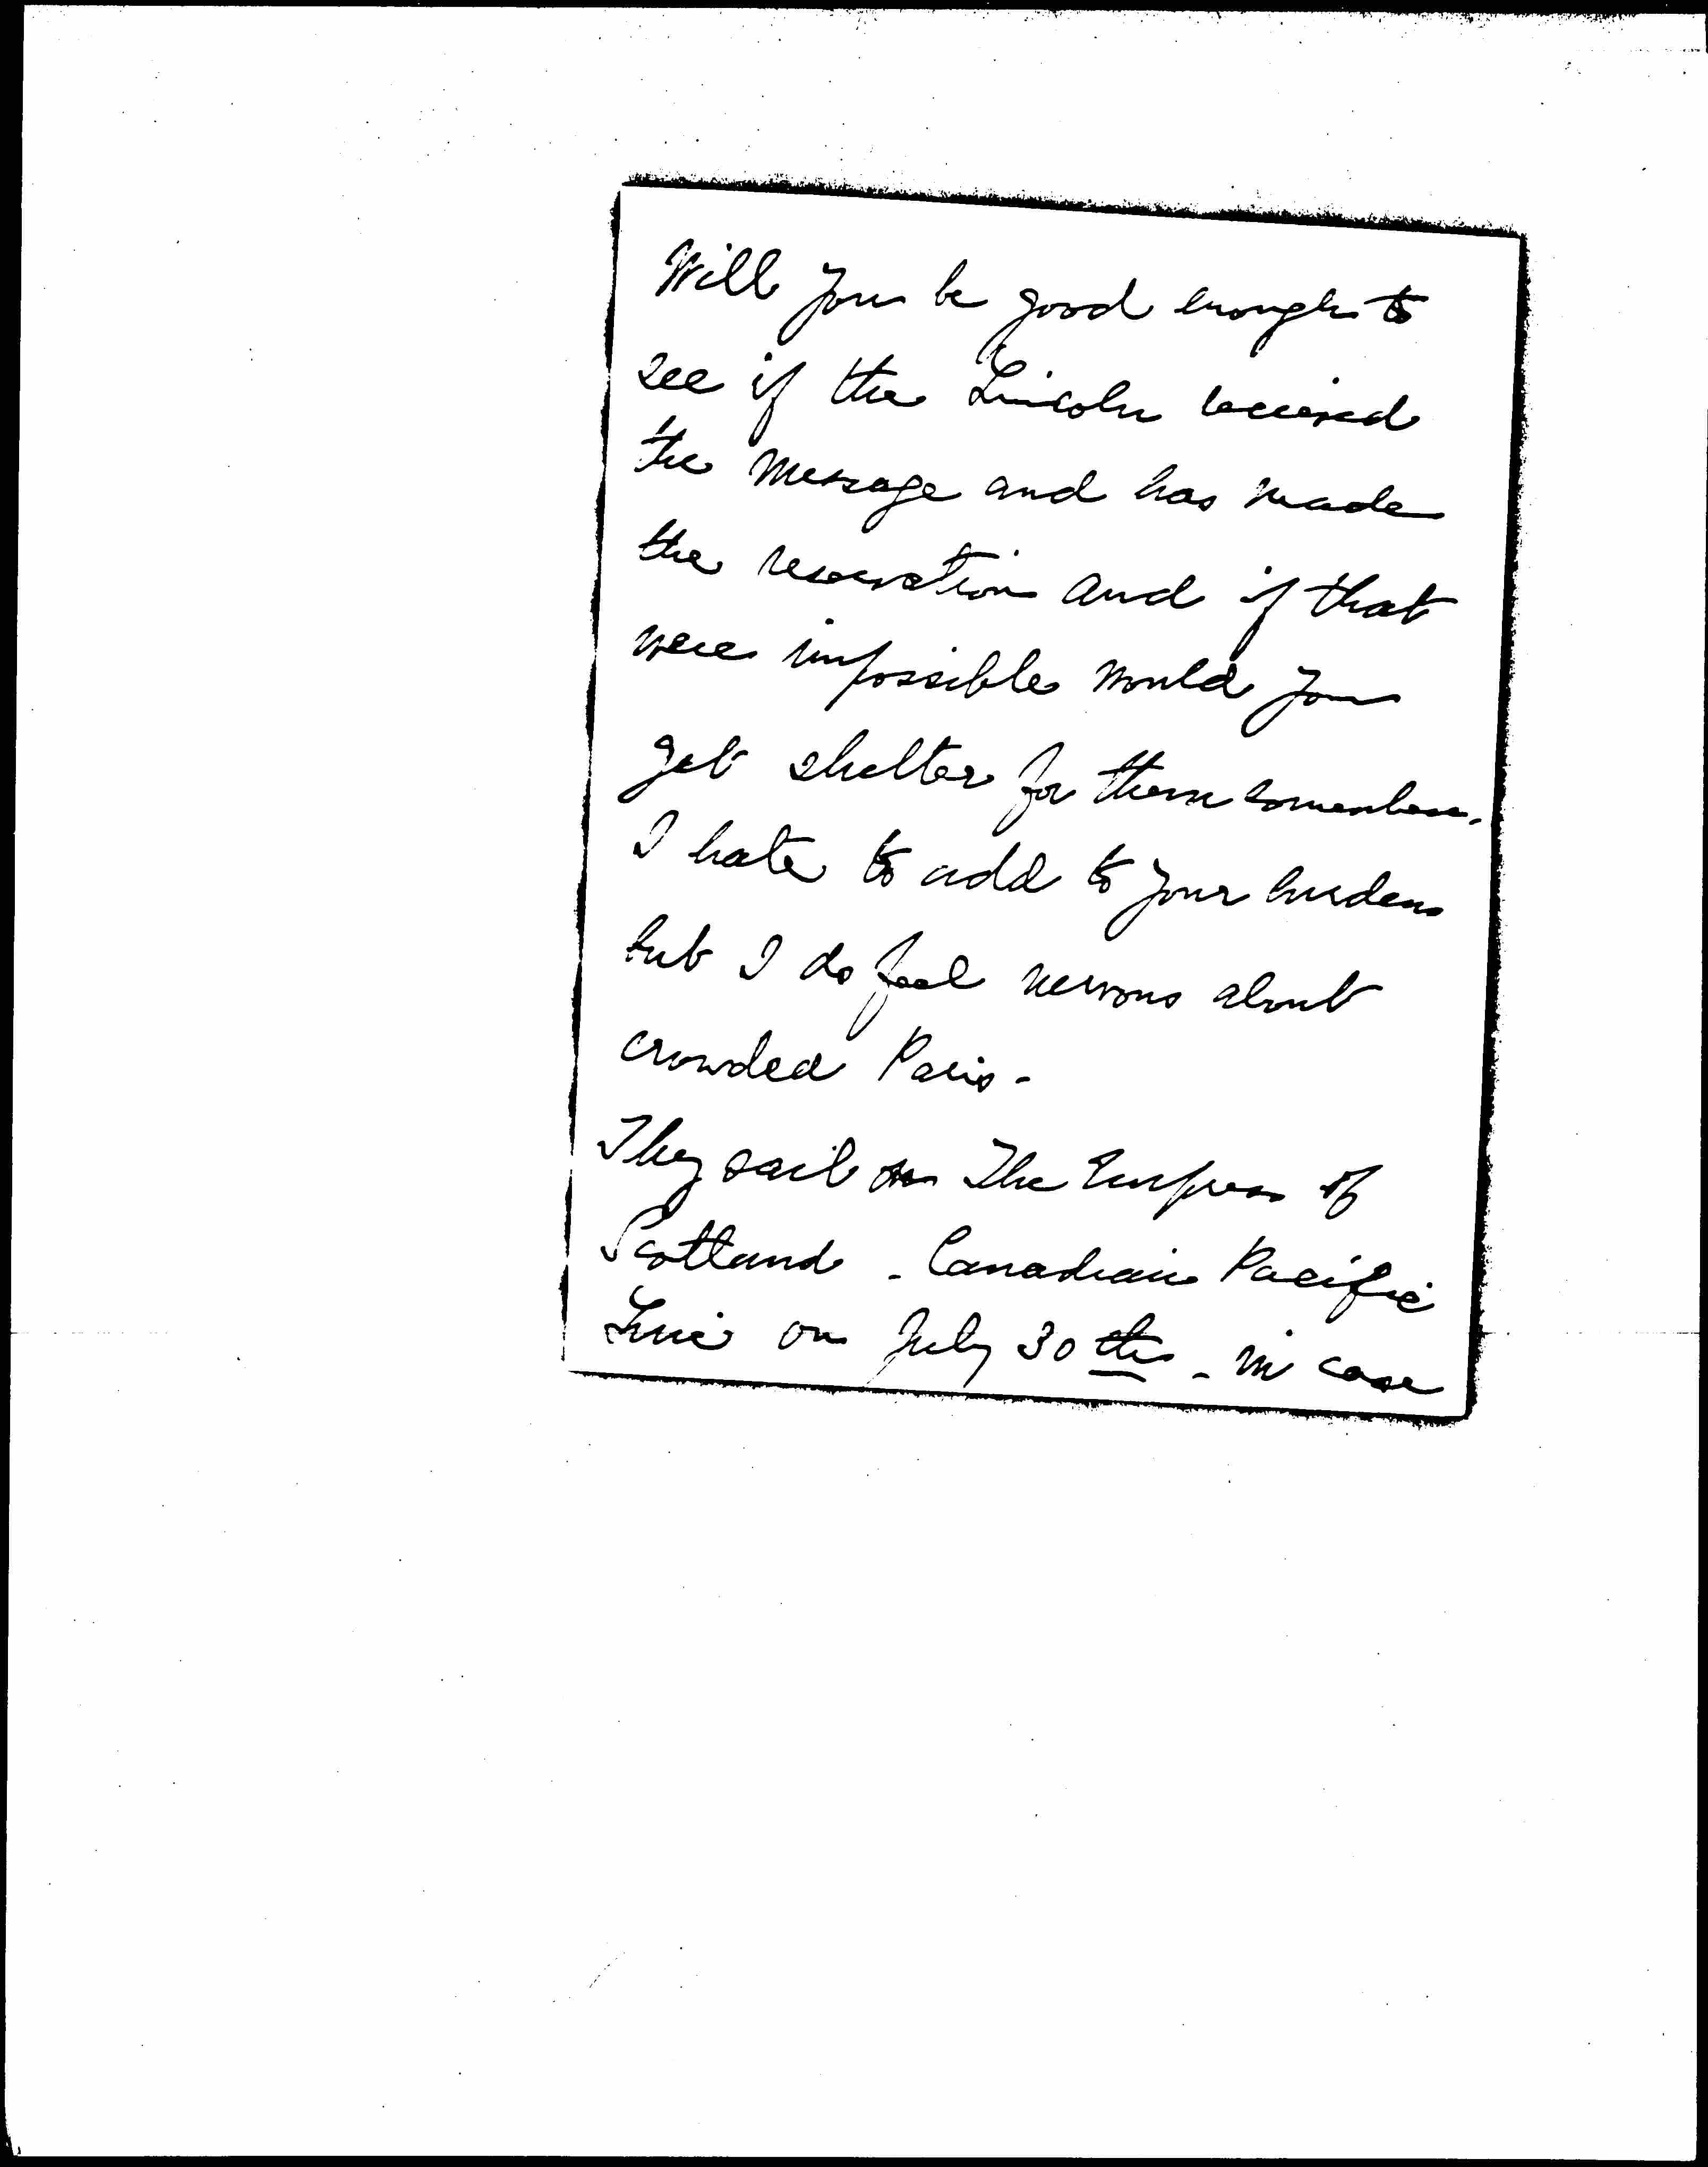 Will you be good enough to
see if the Lincoln received
the message and has made
the reservation and if that
were impossible would you
get shelter for them somewhere.
I hate to add to your burdens
but I do feel nervous about
crowded Paris -
They sail on The Empress of
Scotland - Canadian Pacific
Line on July 30th - in case